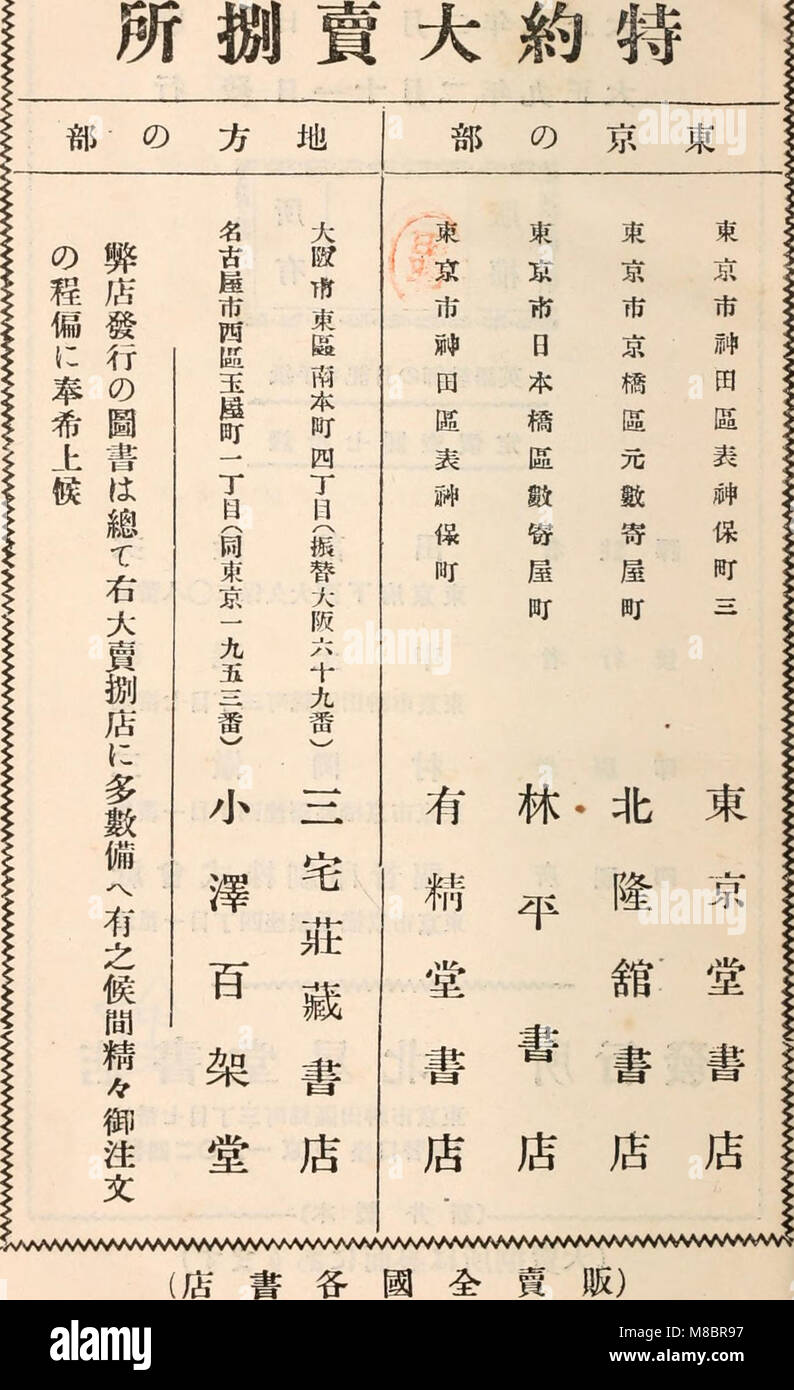 特約大賣捌所
東京の部
東京市神田區表神保町三 東京堂書店
東京市京橋區元數寄屋町 北隆舘書店
東京市日本橋區數寄屋町 林平書店
東京市神田區表神保町 有精堂書店
地方の部
大阪市東區南本町四丁目(振替大阪六十九番) 三宅莊藏書店
名古屋市西區玉屋町一丁目(同東京一九五三番) 小澤百架堂
弊店發行の圖書は總て右大賣捌店に多數備へ有之候間精々御注文
の程偏に奉希上候
(販賣全國各書店)
alamy
Image ID: M8BR97
www.alamy.com